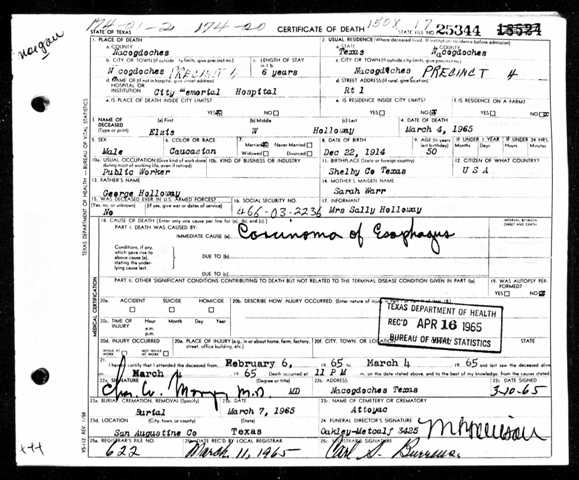 174-01-2 174-20 1508 17
STATE OF TEXAS CERTIFICATE OF DEATH STATE FILE NO. 25344 18524
1. PLACE OF DEATH 2. USUAL RESIDENCE (Where deceased lived. If institution: residence before admission)
a. COUNTY a. STATE b. COUNTY
Nacogdoches Texas Nacogdoches
b. CITY OR TOWN (If outside city limits, give precinct no.) c. LENGTH OF STAY c. CITY OR TOWN (If outside city limits, give precinct no.)
Nacogdoches PRECINCT 4 6 years Nacogdoches PRECINCT 4
d. NAME OF (If not in hospital, give street address) d. STREET ADDRESS (If rural, give location)
HOSPITAL OR
INSTITUTION City Memorial Hospital Rt 1
e. IS PLACE OF DEATH INSIDE CITY LIMITS? e. IS RESIDENCE INSIDE CITY LIMITS? f. IS RESIDENCE ON A FARM?
YES NO YES NO YES NO
3. NAME OF DECEASED (a) First (b) Middle (c) Last 4. DATE OF DEATH
(Type or print) Elzis W Holloway March 4, 1965
5. SEX 6. COLOR OR RACE 7. Married Never Married 8. DATE OF BIRTH 9. AGE (In years last birthday) IF UNDER 1 YEAR IF UNDER 24 HRS.
Months Days Hours Minutes
Male Caucasion Widowed Divorced Dec 22, 1914 50
10a. USUAL OCCUPATION (Give kind of work done during most of working life, even if retired) 10b. KIND OF BUSINESS OR INDUSTRY 11. BIRTHPLACE (State or foreign country) 12. CITIZEN OF WHAT COUNTRY?
Public Worker Shelby Co Texas U S A
13. FATHER'S NAME 14. MOTHER'S MAIDEN NAME
George Holloway Sarah Warr
15. WAS DECEASED EVER IN U.S. ARMED FORCES? 16. SOCIAL SECURITY NO. 17. INFORMANT
(Yes, no, or unknown) (If yes, give war or dates of service)
No 466-03-2236 Mrs Sally Holloway
18. CAUSE OF DEATH [Enter only one cause per line for (a), (b), and (c).] INTERVAL BETWEEN ONSET AND DEATH
PART I. DEATH WAS CAUSED BY:
IMMEDIATE CAUSE (a) Carcinoma of Esophagus
Conditions, if any, which gave rise to above cause (a), stating the underlying cause last.
DUE TO (b)
DUE TO (c)
PART II. OTHER SIGNIFICANT CONDITIONS CONTRIBUTING TO DEATH BUT NOT RELATED TO THE TERMINAL DISEASE CONDITION GIVEN IN PART I(a) 19. WAS AUTOPSY PERFORMED?
YES NO
20a. ACCIDENT SUICIDE HOMICIDE 20b. DESCRIBE HOW INJURY OCCURRED.
TEXAS DEPARTMENT OF HEALTH
REC'D APR 16 1965
BUREAU OF VITAL STATISTICS
20c. TIME OF INJURY Hour Month Day Year
a.m.
p.m.
20d. INJURY OCCURRED 20e. PLACE OF INJURY (e.g., in or about home, farm, factory, street, office building, etc.) 20f. CITY, TOWN, OR LOCATION
21. I hereby certify that I attended the deceased from February 6, 65 March 4 65
March 4 65 Death occurred at 11 PM m. on the date stated above, and to the best of my knowledge, from the causes stated.
22a. SIGNATURE (Degree or title) 22b. ADDRESS 22c. DATE SIGNED
M.D. MD Nacogdoches Texas 3-10-65
23a. BURIAL, CREMATION, REMOVAL (Specify) 23b. DATE 23c. NAME OF CEMETERY OR CREMATORY
Burial March 7, 1965 Attoyac
23d. LOCATION (City, town, or county) (State) 24. FUNERAL DIRECTOR'S SIGNATURE
San Augustine Co Texas Oakley-Metcalf 3425
25a. REGISTRAR'S FILE NO. 25b. DATE REC'D BY LOCAL REGISTRAR 25c. REGISTRAR'S SIGNATURE
622 March 11, 1965
TEXAS DEPARTMENT OF HEALTH - BUREAU OF VITAL STATISTICS
MEDICAL CERTIFICATION